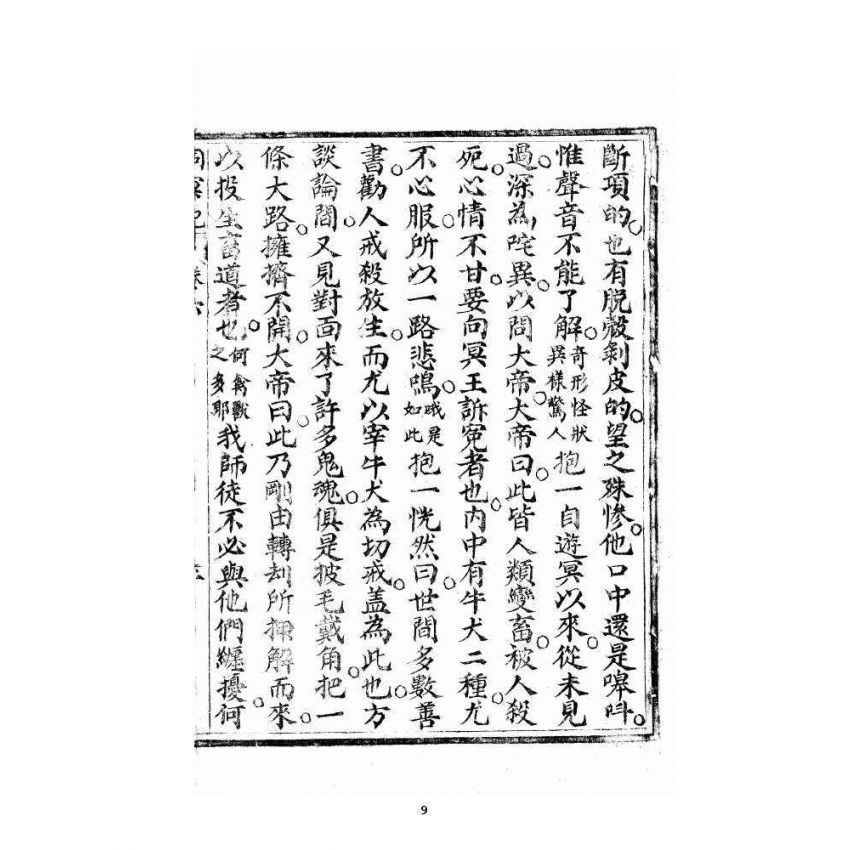 斷項的。也有脱殼剝皮的。望之殊慘。他口中還是嘷呌。
惟聲音不能了解。奇形怪狀異樣驚人抱一自遊冥以來。從未見
過。深為咤異。以問大帝。大帝曰。此皆人類變畜。被人殺
死。心情不甘。要向冥王訴冤者也。内中有牛犬二種。尤
不心服。所以一路悲鳴。哦是如此抱一恍然曰。世間多數善
書。勸人戒殺放生。而尤以宰牛犬為切戒。盖為此也。方
談論間。又見對面來了許多鬼魂。俱是披毛戴角。把一
條大路擁擠不開。大帝曰。此乃剛由轉刦所押解而來。
以投生畜道者也。何禽獸之多耶我師徒不必與他們纏擾。何
9